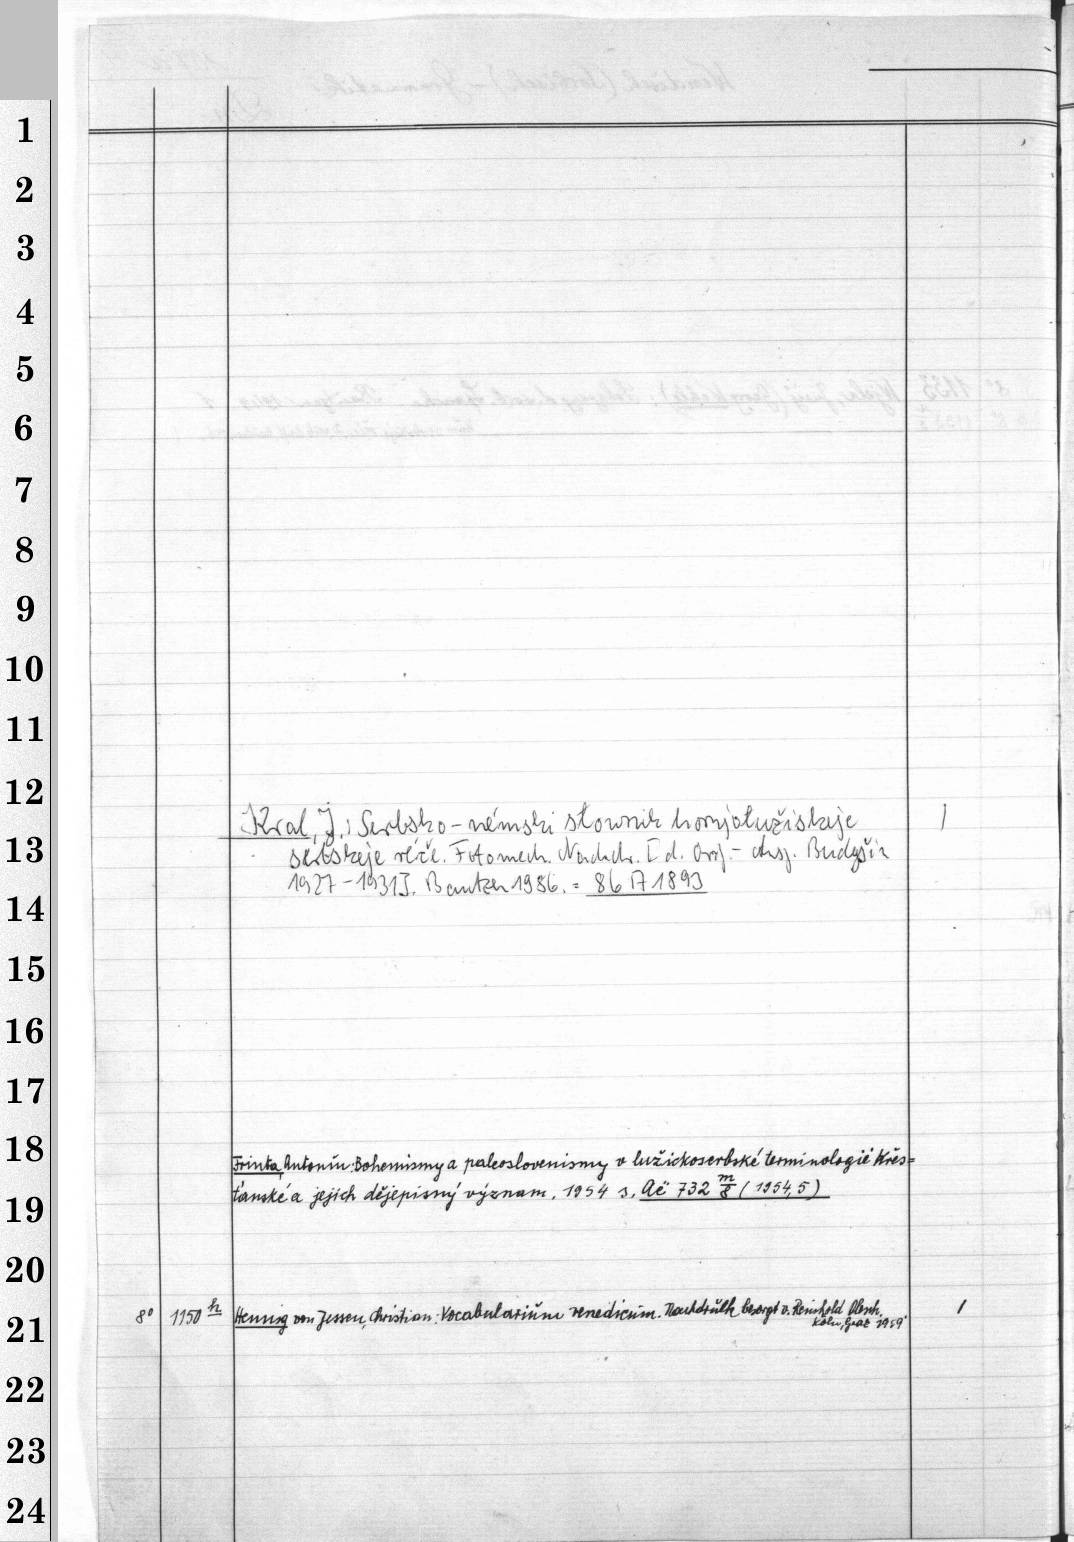 1
2
3
4
5
6
7
8
9
10
11
12
Kral, J.: Serbsko-němski słownik hornjołužiskeje 1
13
serbskeje rěče. Fotomech. Nachdr. [d. Orig.-Ausg. Budyšin
1927-1931]. Bautzen 1986. = 86 A 1893
14
15
16
17
18
Frinta, Antonín: Bohemismy a paleoslovenismy v lužickoserbské terminologii křes=
ťanské a jejich dějepisný význam. 1954 s. Ač 732 m/8 (1954,5)
19
20
8° 1150 h Hennig von Jessen, Christian: Vocabularium venedicum. Nachdruck besorgt v. Reinhold Olesch. 1
21
Köln, Graz 1959
22
23
24